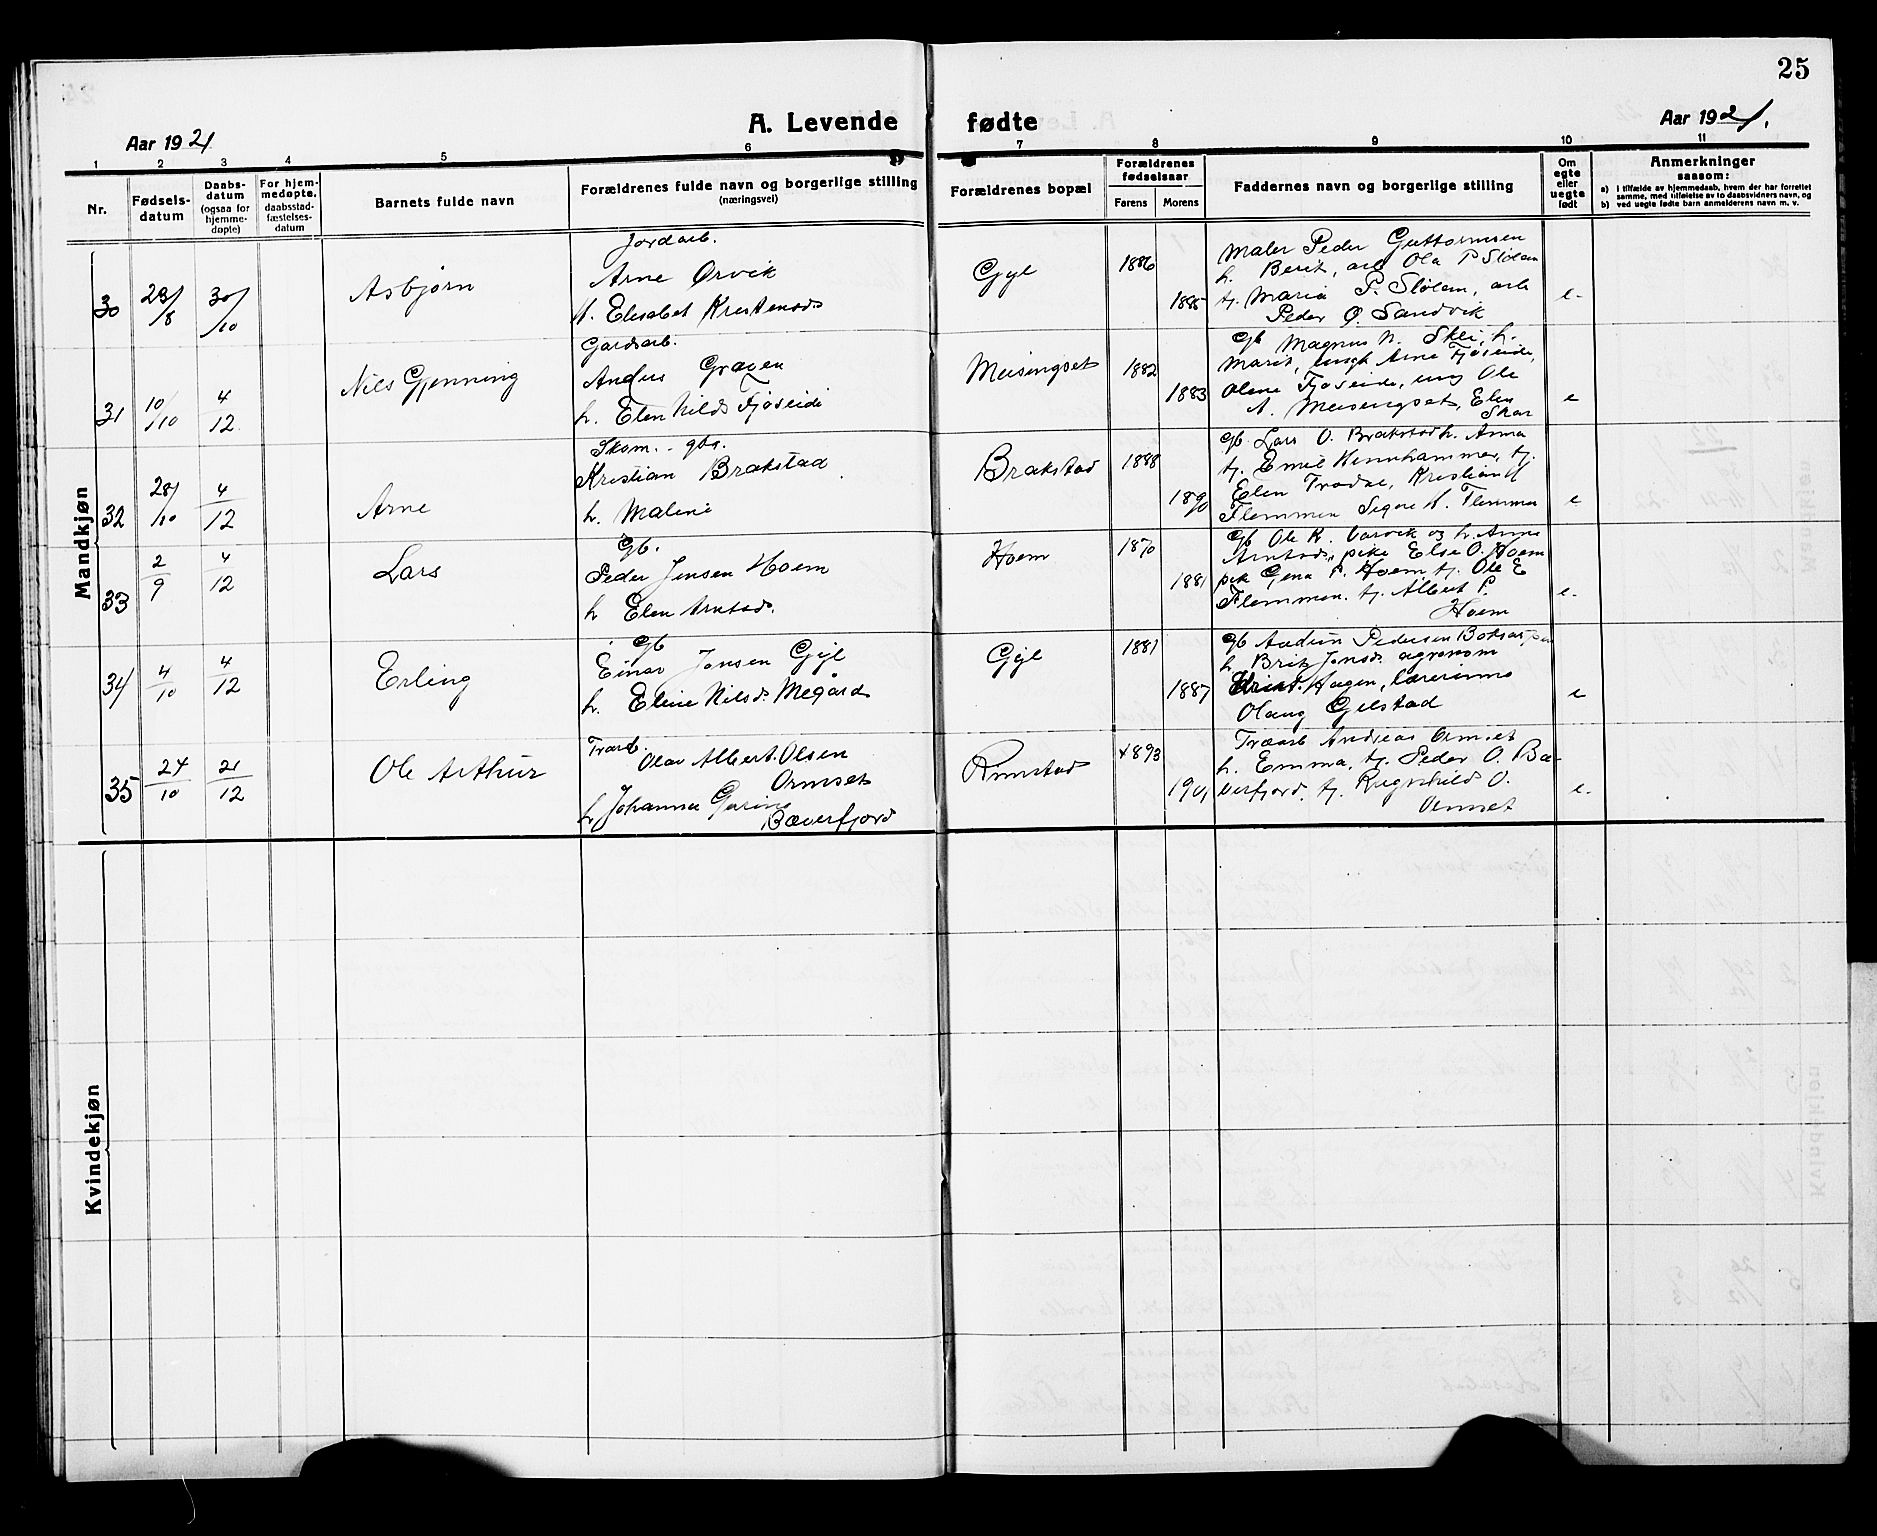 25
Aar 1921
A. Levende fødte
Aar 1921.
1 2 3 4 5 6 7 8 9 10 11
Nr.
Fødsels-
datum
Daabs-
datum
(ogsaa for
hjemme-
døpte)
For hjem-
medøpte.
daabsstad-
fæstelses-
datum
Barnets fulde navn
Forældrenes fulde navn og borgerlige stilling
(næringsvei)
Forældrenes bopæl
Forældrenes
fødselsaar
Farens Morens
Faddernes navn og borgerlige stilling
Om
egte
eller
uegte
født
Anmerkninger
saasom:
a) i tilfælde av hjemmedaab, hvem der har forrettet
samme, med tilføielse av to daabsvidners navn, og
b) ved uegte fødte barn anmelderens navn m. v.
Mandkjøn
30 29/8 30/10
Asbjørn
Jordarb.
Arne Ørvik
Elisabet Kristensd.
Gyl
1886
1885
Maler Peder Guttormsen
h. Berit, arb Ola P Slølem
tj. Maria P. Slølem, arb
Peder O. Sandvik
e.
31 10/10 4/12
Nils Gjenning
Gardarb.
Anders Graven
h. Elen Nilsd Fjøseide
Meisingset
1882
1883
Gb Magnus N. Skei, h.
Marit, ungk Arne Fjøseide,
Olene Fjøseide, ung Ole
A. Meisingset, Elen
Skar
e
32 28/10 4/12
Arne
Skom. gbr.
Kristian Brakstad
h. Malene
Brakstad
1888
1890
Gb Lars O. Brakstad h. Anna
tj. Emil Hennhammer, tj.
Elen Trodal, Kristian
Flemmen Signe N. Flemmen
e
33 2/9 4/12
Lars
Gb.
Peder Jensen Hoem
h Elen Arntsd.
Hoem
1870
1881
Gb Ole K. Varvik og h. Anne
Arntsd., pike Else O. Hoem
pik Gena P. Hoem tj. Ole E
Flemmen. tj. Albert P.
Hoem
e.
34 4/10 4/12
Erling
Gb
Einar Jonsen Gyl
h. Eline Nilsd. Megård
Gyl
1881
1887
Gb Audun Pedersen
h. Brit Jonsd. agronom
Hagen, lærerinne
Olaug Gjelstad
e
35 24/10 21/12
Ole Arthur
Træarb.
Olav Albert Olsen
Ormset
h Johanna Gurine
Bæverfjord
Rimstad
1893
1901
Træarb Andreas Ormset
h. Emma, tj. Peder O. Bæ-
verfjord, tj. Ragnhild O.
Ormset
e.
Kvindekjøn